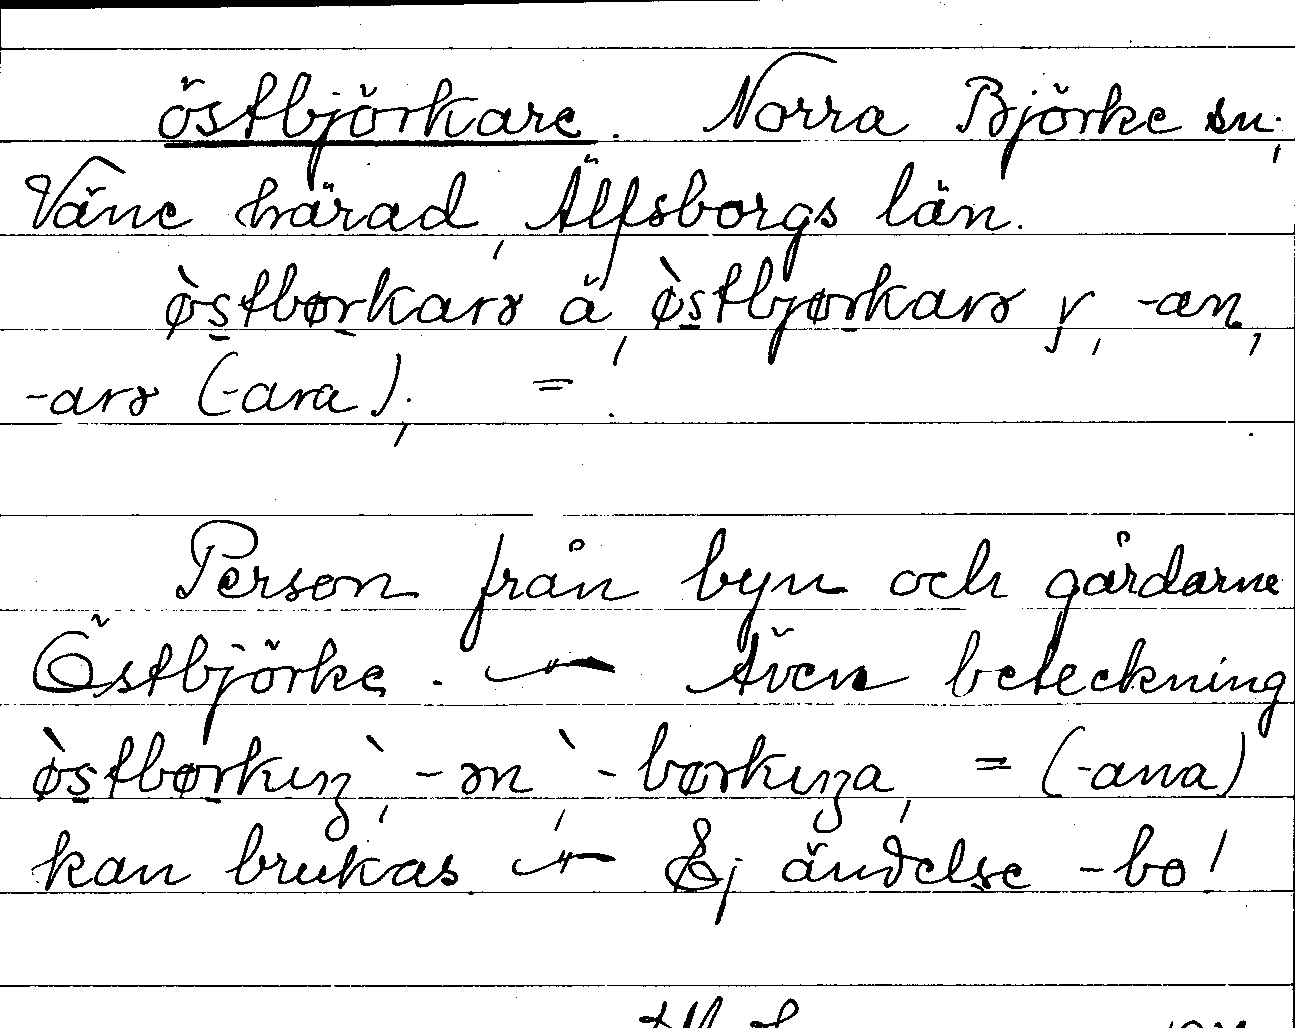 östbjörkare. Norra Björke sn,
Väne härad, Älfsborgs län.
ø̀stbørkarə ä, ø̀stbjørkarə y, -an,
-arə (-ara), =.
Person från byn och gårdarne
Östbjörke. — Även beteckning
ø̀stbørkıŋ, -ən, -børkıŋa, = (-ana)
kan brukas — Ej ändelse -bo!